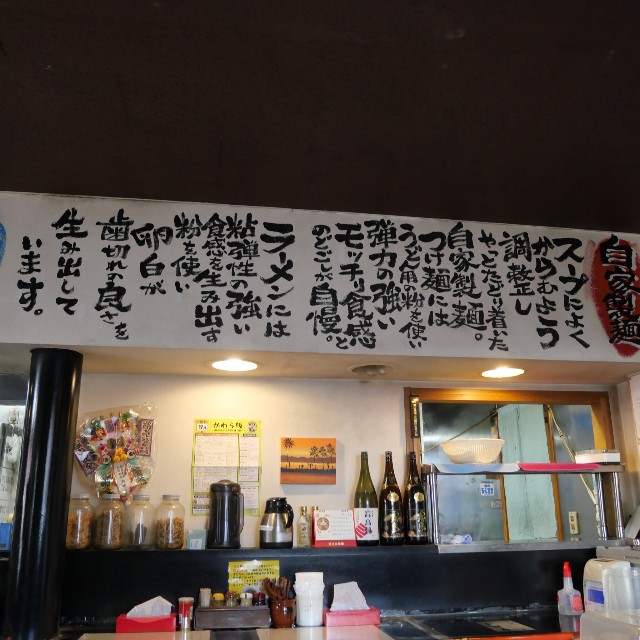 自家製麺
スープによく
からむよう
調整し
やっとたどり着いた
自家製中麺。
つけ麺には
うどん用の粉を使い
弾力の強い
モッチリ食感と
のどごしが自慢。
ラーメンには
粘弾性の強い
食感を生み出す
粉を使い
卵白が
歯切れの良さを
生み出して
います。
かわら版